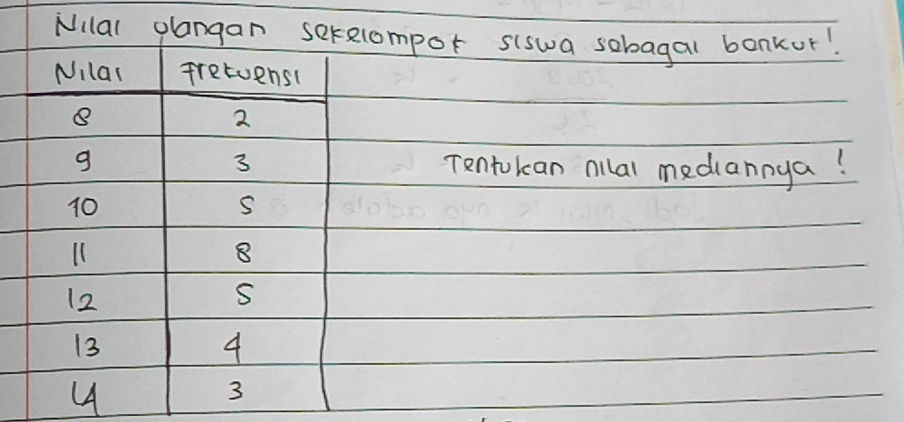 Nilai ulangan sekelompok siswa sebagai berikut!
Nilai Frekuensi
8 2
9 3 Tentukan nilai mediannya!
10 5
11 8
12 5
13 4
14 3